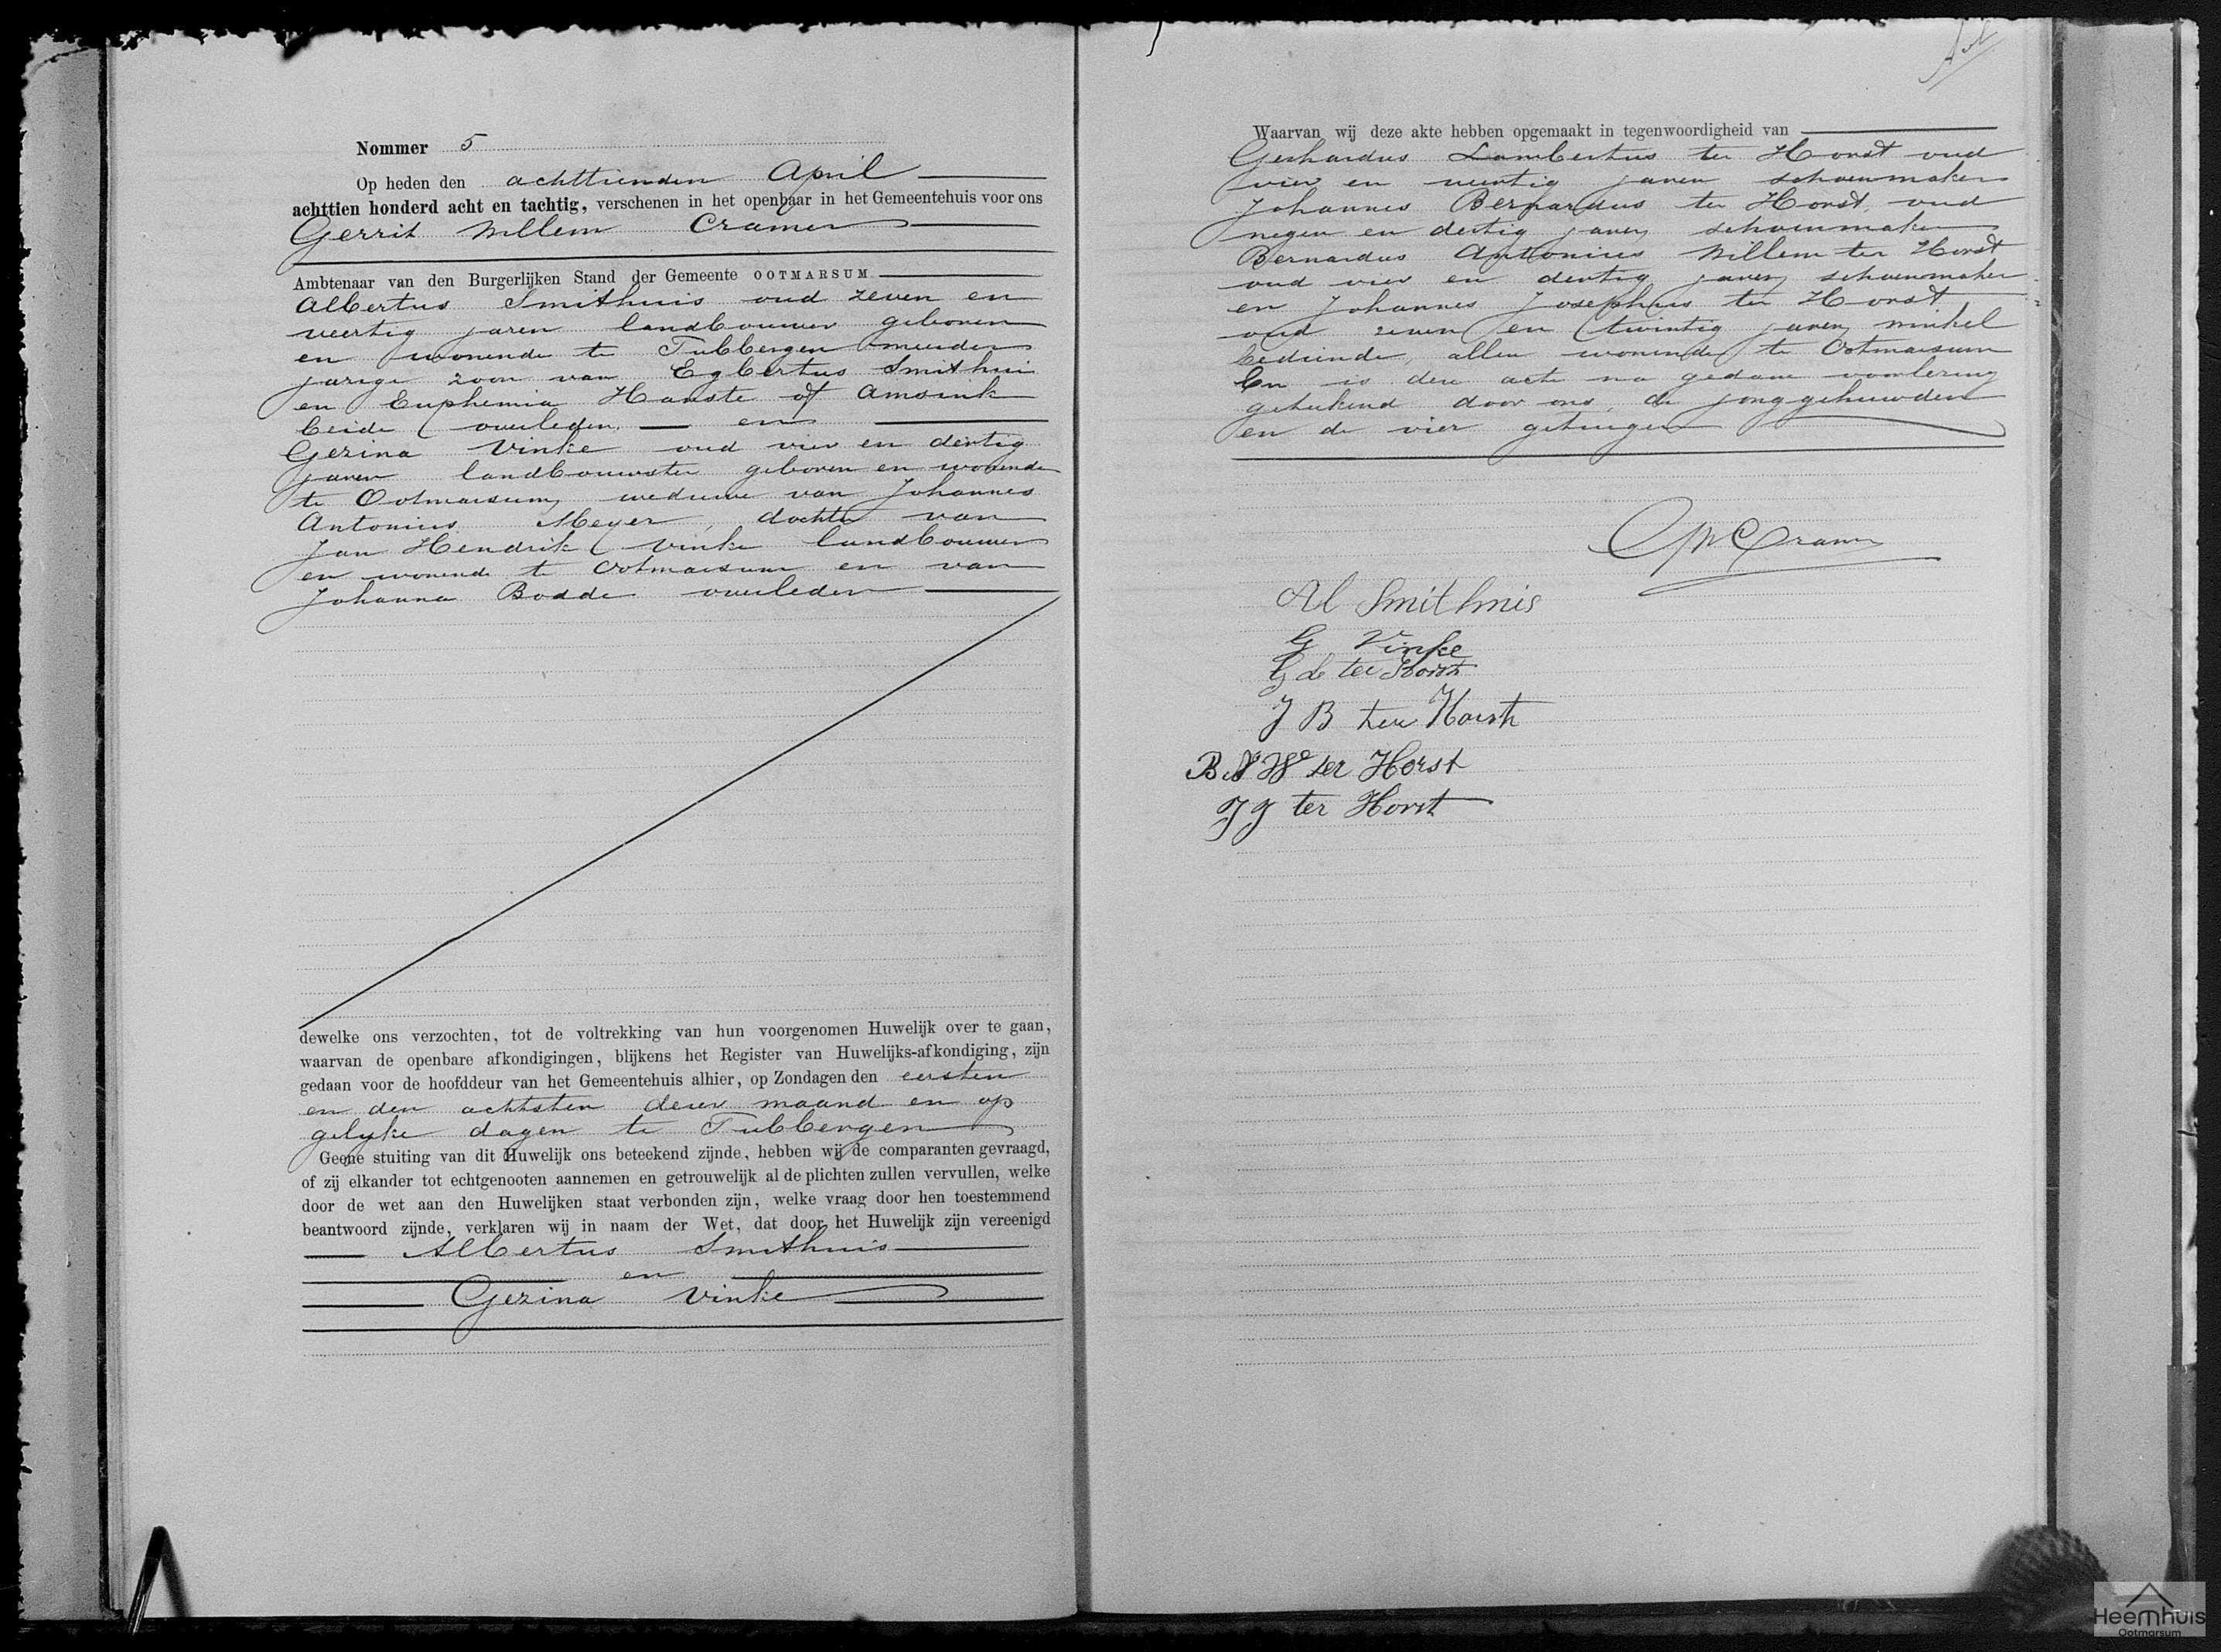 Nommer 5
Op heden den achttienden April
achttien honderd acht en tachtig, verschenen in het openbaar in het Gemeentehuis voor ons
Gerrit Willem Cramer
Ambtenaar van den Burgerlijken Stand der Gemeente OOTMARSUM
Albertus Smithuis oud zeven en
veertig jaren landbouwer geboren
en wonende te Tubbergen meerder
jarige zoon van Egbertus Smithuis
en Euphemia Hanste of Amsink
beide overleden, en
Gezina Vinke oud vier en dertig
jaren landbouwster geboren en wonende
te Ootmarsum, weduwe van Johannes
Antonius Meyer, dochter van
Jan Hendrik Vinke landbouwer
en wonende te Ootmarsum en van
Johanna Bodde overleden
dewelke ons verzochten, tot de voltrekking van hun voorgenomen Huwelijk over te gaan,
waarvan de openbare afkondigingen, blijkens het Register van Huwelijks-afkondiging, zijn
gedaan voor de hoofddeur van het Gemeentehuis alhier, op Zondagen den eersten
en den achtsten dezer maand en op
gelyke dagen te Tubbergen
Geene stuiting van dit Huwelijk ons beteekend zijnde, hebben wij de comparanten gevraagd,
of zij elkander tot echtgenooten aannemen en getrouwelijk al de plichten zullen vervullen, welke
door de wet aan den Huwelijken staat verbonden zijn, welke vraag door hen toestemmend
beantwoord zijnde, verklaren wij in naam der Wet, dat door het Huwelijk zijn vereenigd
Albertus Smithuis
en
Gezina Vinke
Waarvan wij deze akte hebben opgemaakt in tegenwoordigheid van
Gerhardus Lambertus ter Horst oud
vier en veertig jaren schoenmaker
Johannes Bernardus ter Horst, oud
negen en dertig jaren schoenmaker
Bernardus Antonius Willem ter Horst
oud vier en dertig jaren schoenmaker
en Johannes Josephus ter Horst
oud zeven en twintig jaren, winkel
bediende, allen wonende te Ootmarsum
En is deze acte na gedane voorlezing
geteekend door ons, de jonggehuwden
en de vier getuigen
GW Cramer
Al Smithuis
G Vinke
G L ter Horst
J B ter Horst
B A W ter Horst
J J ter Horst
Heemhuis
Ootmarsum